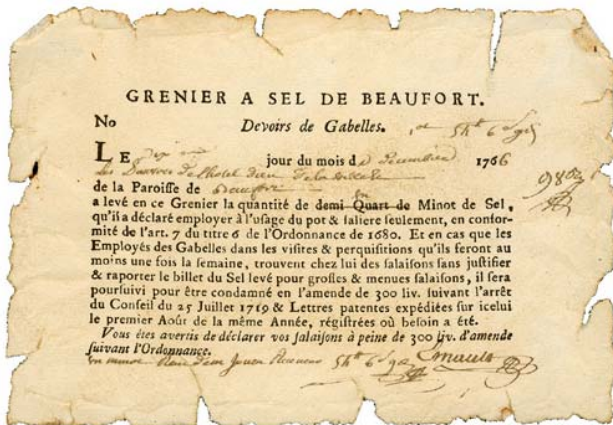 GRENIER A SEL DE BEAUFORT.
No Devoirs de Gabelles.
LE jour du mois de 1766
de la Paroisse de Beaufort
a levé en ce Grenier la quantité de demi Quart de Minot de Sel,
qu'il a déclaré employer à l'usage du pot & saliere seulement, en confor-
mité de l'art. 7 du titre 6 de l'Ordonnance de 1680. Et en cas que les
Employés des Gabelles dans les visites & perquisitions qu'ils feront au
moins une fois la semaine, trouvent chez lui des salaisons sans justifier
& raporter le billet du Sel levé pour grosses & menues salaisons, il sera
poursuivi pour être condamné en l'amende de 300 liv. suivant l'arrêt
du Conseil du 25 Juillet 1719 & Lettres patentes expédiées sur icelui
le premier Août de la même Année, régistrées où besoin a été.
Vous êtes avertis de déclarer vos salaisons à peine de 300 liv. d'amende
suivant l'Ordonnance.